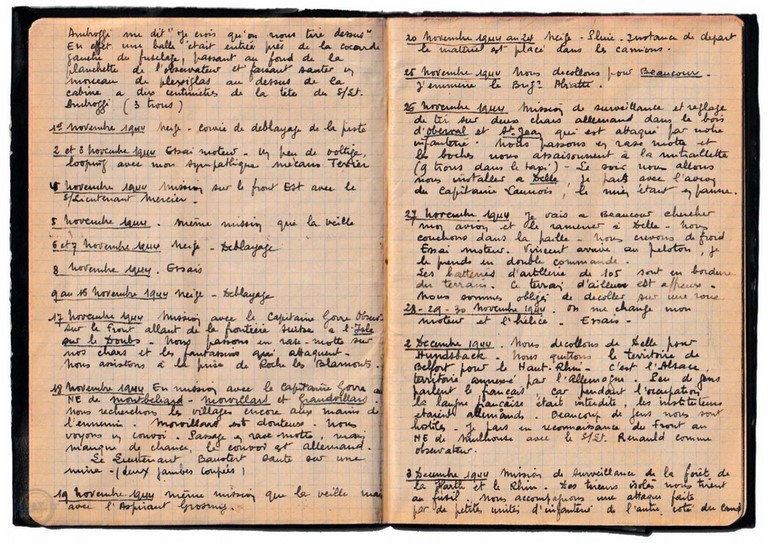 Ambroffi me dit "Je crois qu'on nous tire dessus"
En effet une balle était entrée près de la cocarde
gauche du fuselage, passant au fond de la
planchette de l'observateur et faisant sauter un
morceau de plexiglas au dessus de la
cabine a dix centimètres de la tête du S/Lt.
Ambroffi (3 trous)
1er novembre 1944 neige - corvée de déblayage de la piste
2 et 3 novembre 1944 Essai moteur - un peu de voltige
looping avec mon sympathique mécano Texier
4 novembre 1944 Mission sur le front Est avec le
S/Lieutenant Mercier.
5 novembre 1944. même mission que la veille
6 et 7 novembre 1944 neige - Déblayage
8 novembre 1944. Essais
9 au 15 novembre 1944 neige - Déblayage
17 novembre 1944 Mission avec le Capitaine Gorre Observ
sur le Front allant de la frontière suisse a l'Isle
sur le Doubs - nous passons en rase-motte sur
nos chars et les fantassins qui attaquent.
nous assistons à la prise de Roche les Blamont.
18 novembre 1944 En mission avec le Capitaine Gorre a
NE de montbéliard - morvillard et Grandvillars
nous recherchons les villages encore aux mains de
l'ennemie. Morvillard est douteux - nous
voyons un convoi. Passage en rase motte, mais
manque de chance, le convoi est allemand.
Le Lieutenant Baustert saute sur une
mine - (deux jambes coupées)
19 novembre 1944 même mission que la veille mais
avec l'Aspirant
20 novembre 1944 au 24 neige - Pluie - Instance de départ
le matériel est placé dans les camions.
25 novembre 1944 nous décollons pour Beaucour -
J'emmène le Brig.
26 novembre 1944 Mission de surveillance et réglage
de tir sur deux chars allemand dans le bois
d'oberwal et St Jean qui est attaqué par notre
infanterie. nous passons en rase motte et
les boches nous assaisonnent à la mitraillette
(9 trous dans le taxi) - Le soir nous allons
nous installer a Delle - Je pars avec l'avion
du Capitaine Lannois, le mien étant en panne.
27 novembre 1944 Je vais a Beaucour chercher
mon avion et le ramener à Delle - nous
couchons dans la paille - nous crevons de froid
Essai moteur. Vincent arrive au peloton, je
le prends en double commande.
Les batteries d'artillerie de 105 sont en bordure
du terrain. Ce terrain d'ailleurs est affreux -
nous sommes obligé de décoller sur une roue
28 - 29 - 30 novembre 1944. on me change mon
moteur et l'hélice - Essais -
2 Décembre 1944. nous décollons de Delle pour
Hundsback - nous quittons le territoire de
Belfort pour le Haut-Rhin - C'est l'Alsace
territoire annexé par l'Allemagne. Peu de gens
parlent le français, car pendant l'occupation
la langue française était interdite, les instituteurs
étaient allemands - Beaucoup de gens nous sont
hostiles - Je pars en reconnaissance du Front au
NE de Mulhouse avec le S/Lt. Renauld comme
observateur.
3 Décembre 1944 Mission de surveillance de la forêt de
la Harth et le Rhin - Des tireurs isolés nous tirent
au fusil. nous accompagnons une attaque faite
par de petites unités d'infanterie de l'autre côté du canal